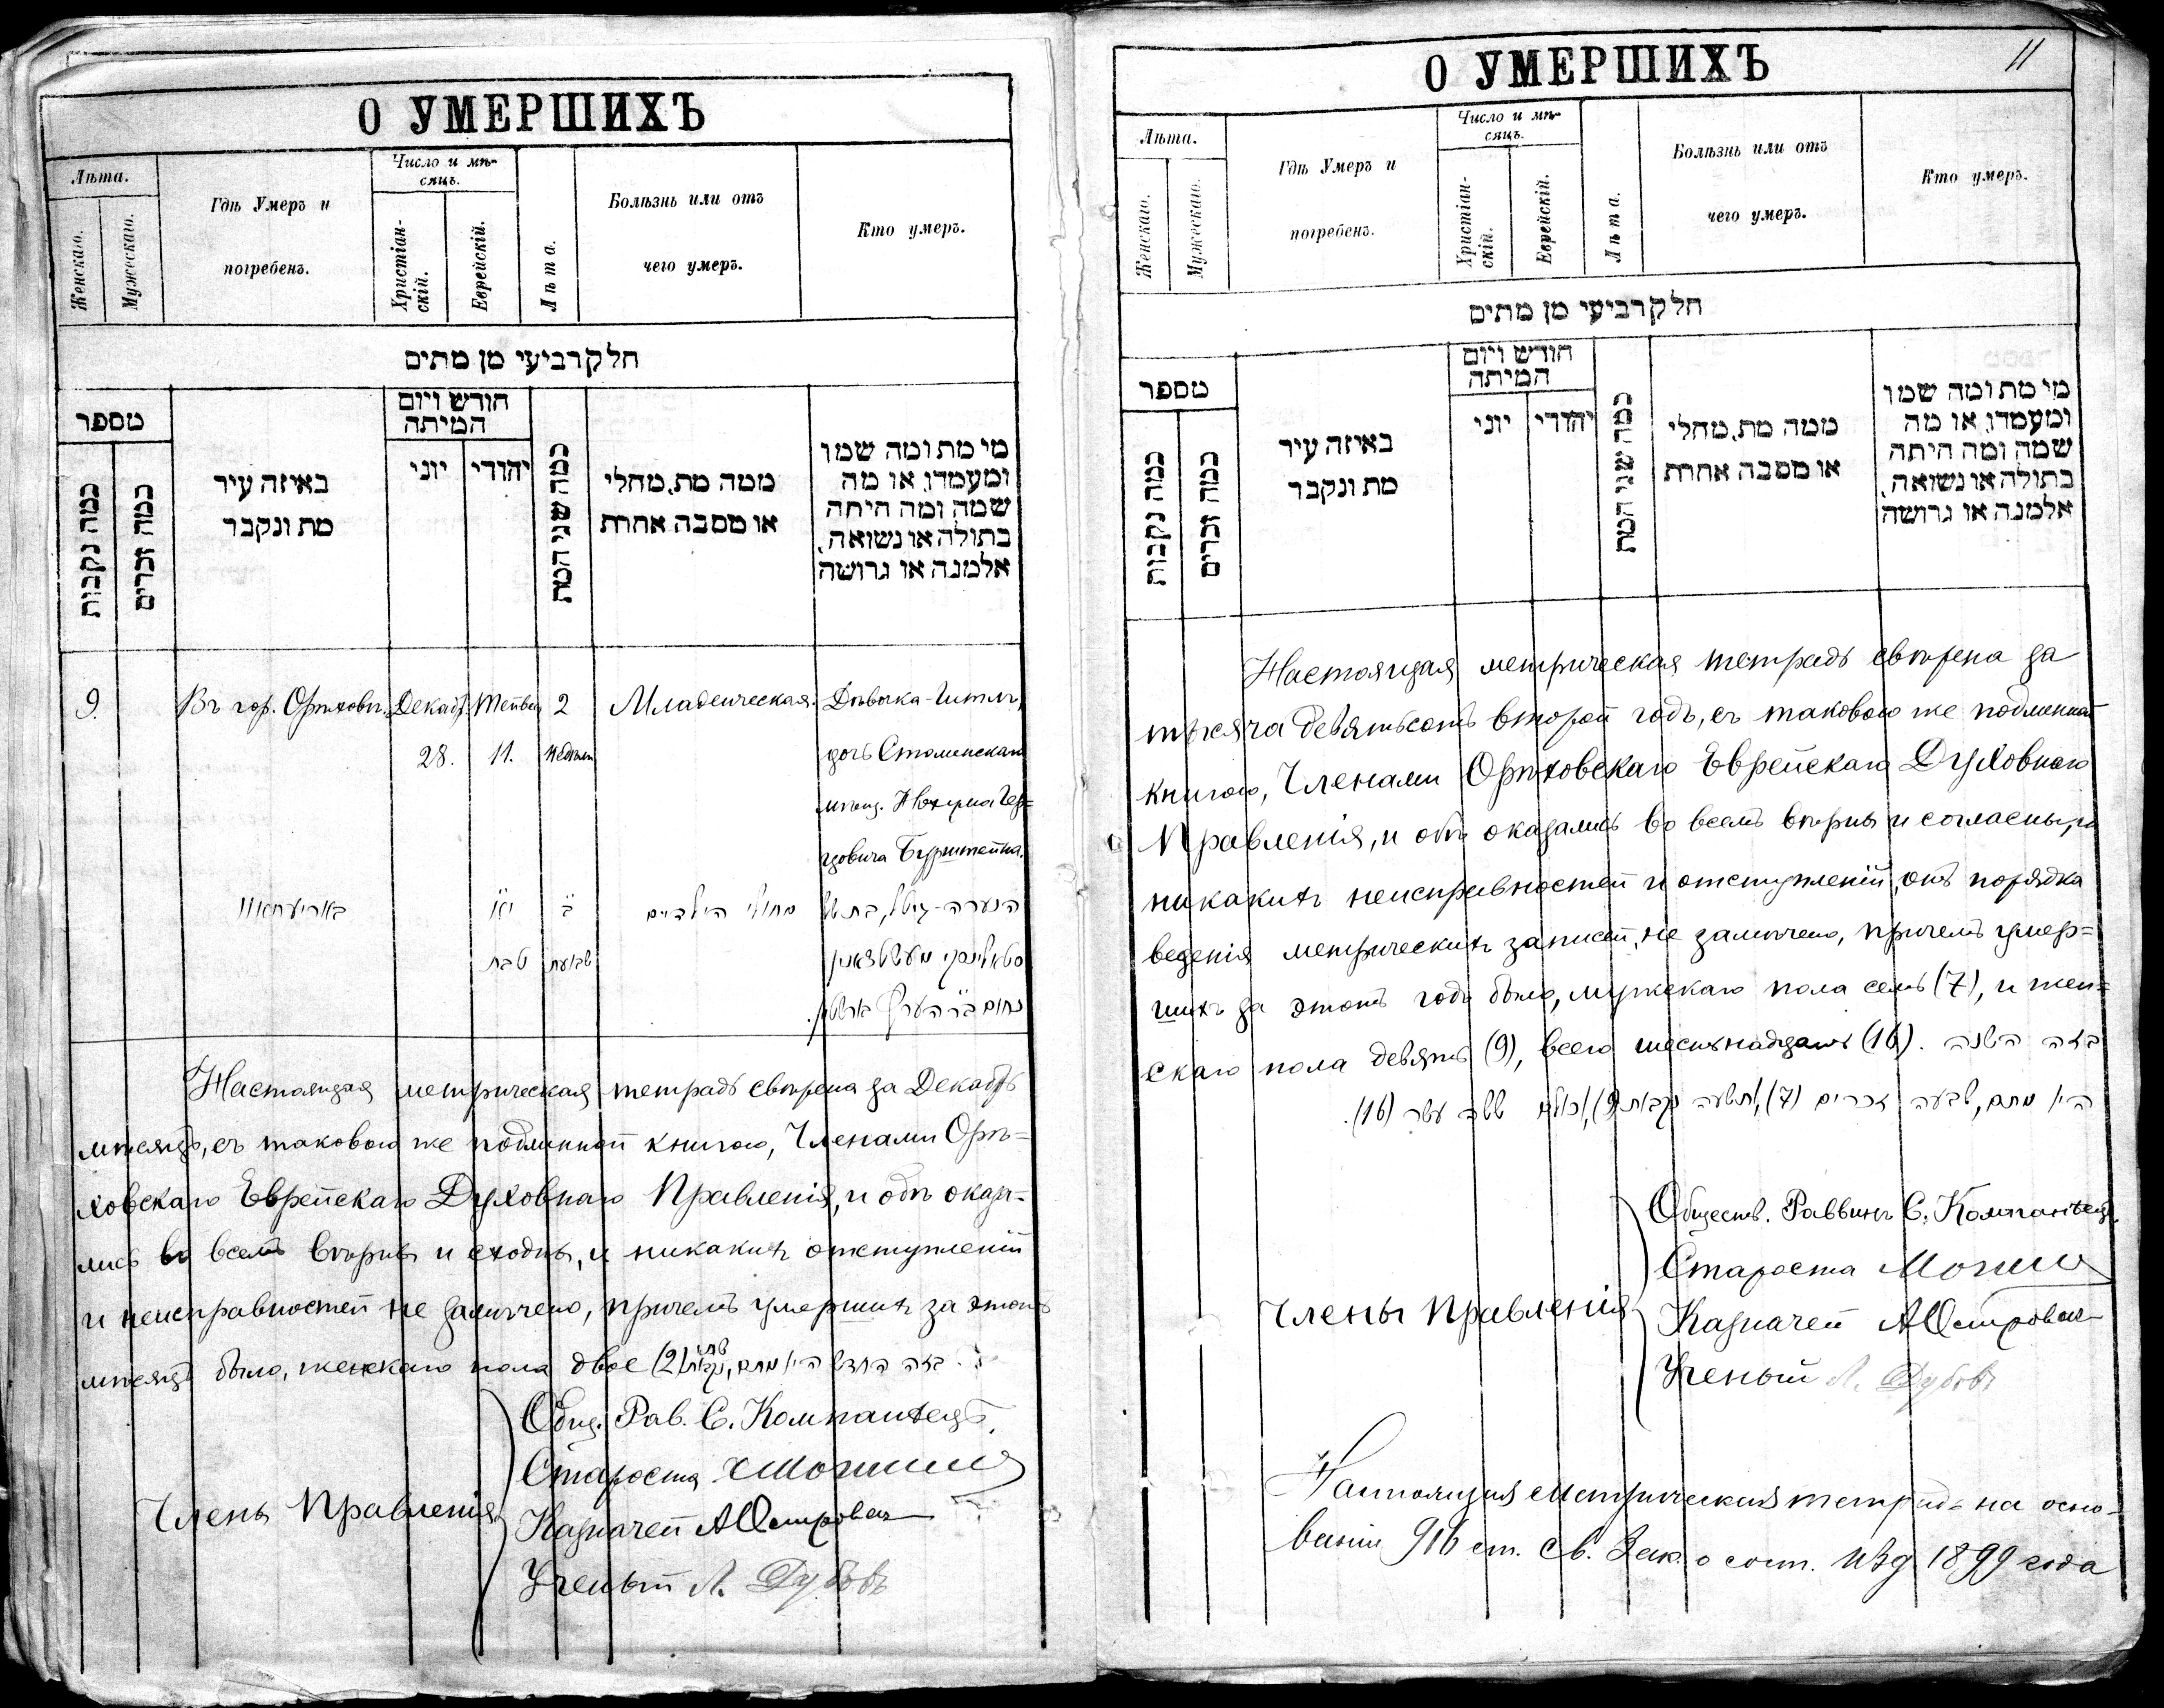 О УМЕРШИХЪ
Лѣта.
Женскаго.
Мужескаго.
Гдѣ Умеръ и
погребенъ.
Число и мѣ-
сяцъ.
Христіан-
скій.
Еврейскій.
Лѣта.
Болѣзнь или отъ
чего умеръ.
Кто умеръ.
חלק רביעי מן מתים
מספר
כמה נקבות
כמה זכרים
באיזה עיר
מת ונקבר
חודש ויום
המיתה
יוני
יהודי
כמה שני המת
ממה מת, מחלי
או מסבה אחרת
מי מת ומה שמו
ומעמדו, או מה
שמה ומה היתה
בתולה או נשואה,
אלמנה או גרושה
9. Въ гор. Орѣховѣ. Декабр. Тейвеса 2 Младенческая. Дѣвочка-Гитль,
28. 11. недѣли дочь Столинскаго
мѣщ. Нохума Гер=
цовича Бурштейна.
באריעחאוו יא ב מחולי הילדים הנערה-גיטל, בת
טבת שבועות
נחום בר הערץ
Настоящая метрическая тетрадь свѣрена за Декабрь
мѣсяцъ, съ таковою же подлинной книгою, Членами Орѣ=
ховскаго Еврейскаго Духовнаго Правленія, и обѣ оказа-
лись во всемъ вѣрны и сходны, и никакихъ отступленій
и неисправностей не замѣчено, причемъ умершихъ за этотъ
мѣсяцъ было, женскаго пола двое (2). בזה החדש היו מתים, שתי נקבות
Общ. Рав. С. Компанѣецъ.
Староста
Члены Правленія Казначей АОстровскі
Ученый Л. Дубовъ
О УМЕРШИХЪ
11
Лѣта.
Женскаго.
Мужескаго.
Гдѣ Умеръ и
погребенъ.
Число и мѣ-
сяцъ.
Христіан-
скій.
Еврейскій.
Лѣта.
Болѣзнь или отъ
чего умеръ.
Кто умеръ.
חלק רביעי מן מתים
מספר
כמה נקבות
כמה זכרים
באיזה עיר
מת ונקבר
חודש ויום
המיתה
יוני
יהודי
כמה שני המת
ממה מת, מחלי
או מסבה אחרת
מי מת ומה שמו
ומעמדו, או מה
שמה ומה היתה
בתולה או נשואה,
אלמנה או גרושה
Настоящая метрическая тетрадь свѣрена за
тысяча девятьсотъ второй годъ, съ таковою же подлинной
книгою, Членами Орѣховскаго Еврейскаго Духовнаго
Правленія, и обѣ оказались во всемъ вѣрны и согласны, и
никакихъ неисправностей и отступленій, отъ порядка
веденія метрическихъ записей, не замѣчено, причемъ умер=
шихъ за этотъ годъ было, мужскаго пола семь (7), и жен=
скаго пола девять (9), всего шестнадцать (16). בזה השנה
היו מתים, שבעה זכרים (7), ותשעה נקבות (9), ששה עשר (16).
Обществ. Раввинъ С. Компанѣецъ.
Староста
Члены Правленія Казначей АОстровскі
Ученый Л. Дубовъ
Настоящая Метрическая тетрадь на осно-
ваніи 916 ст. Св. Зак. о сост. изд 1899 года